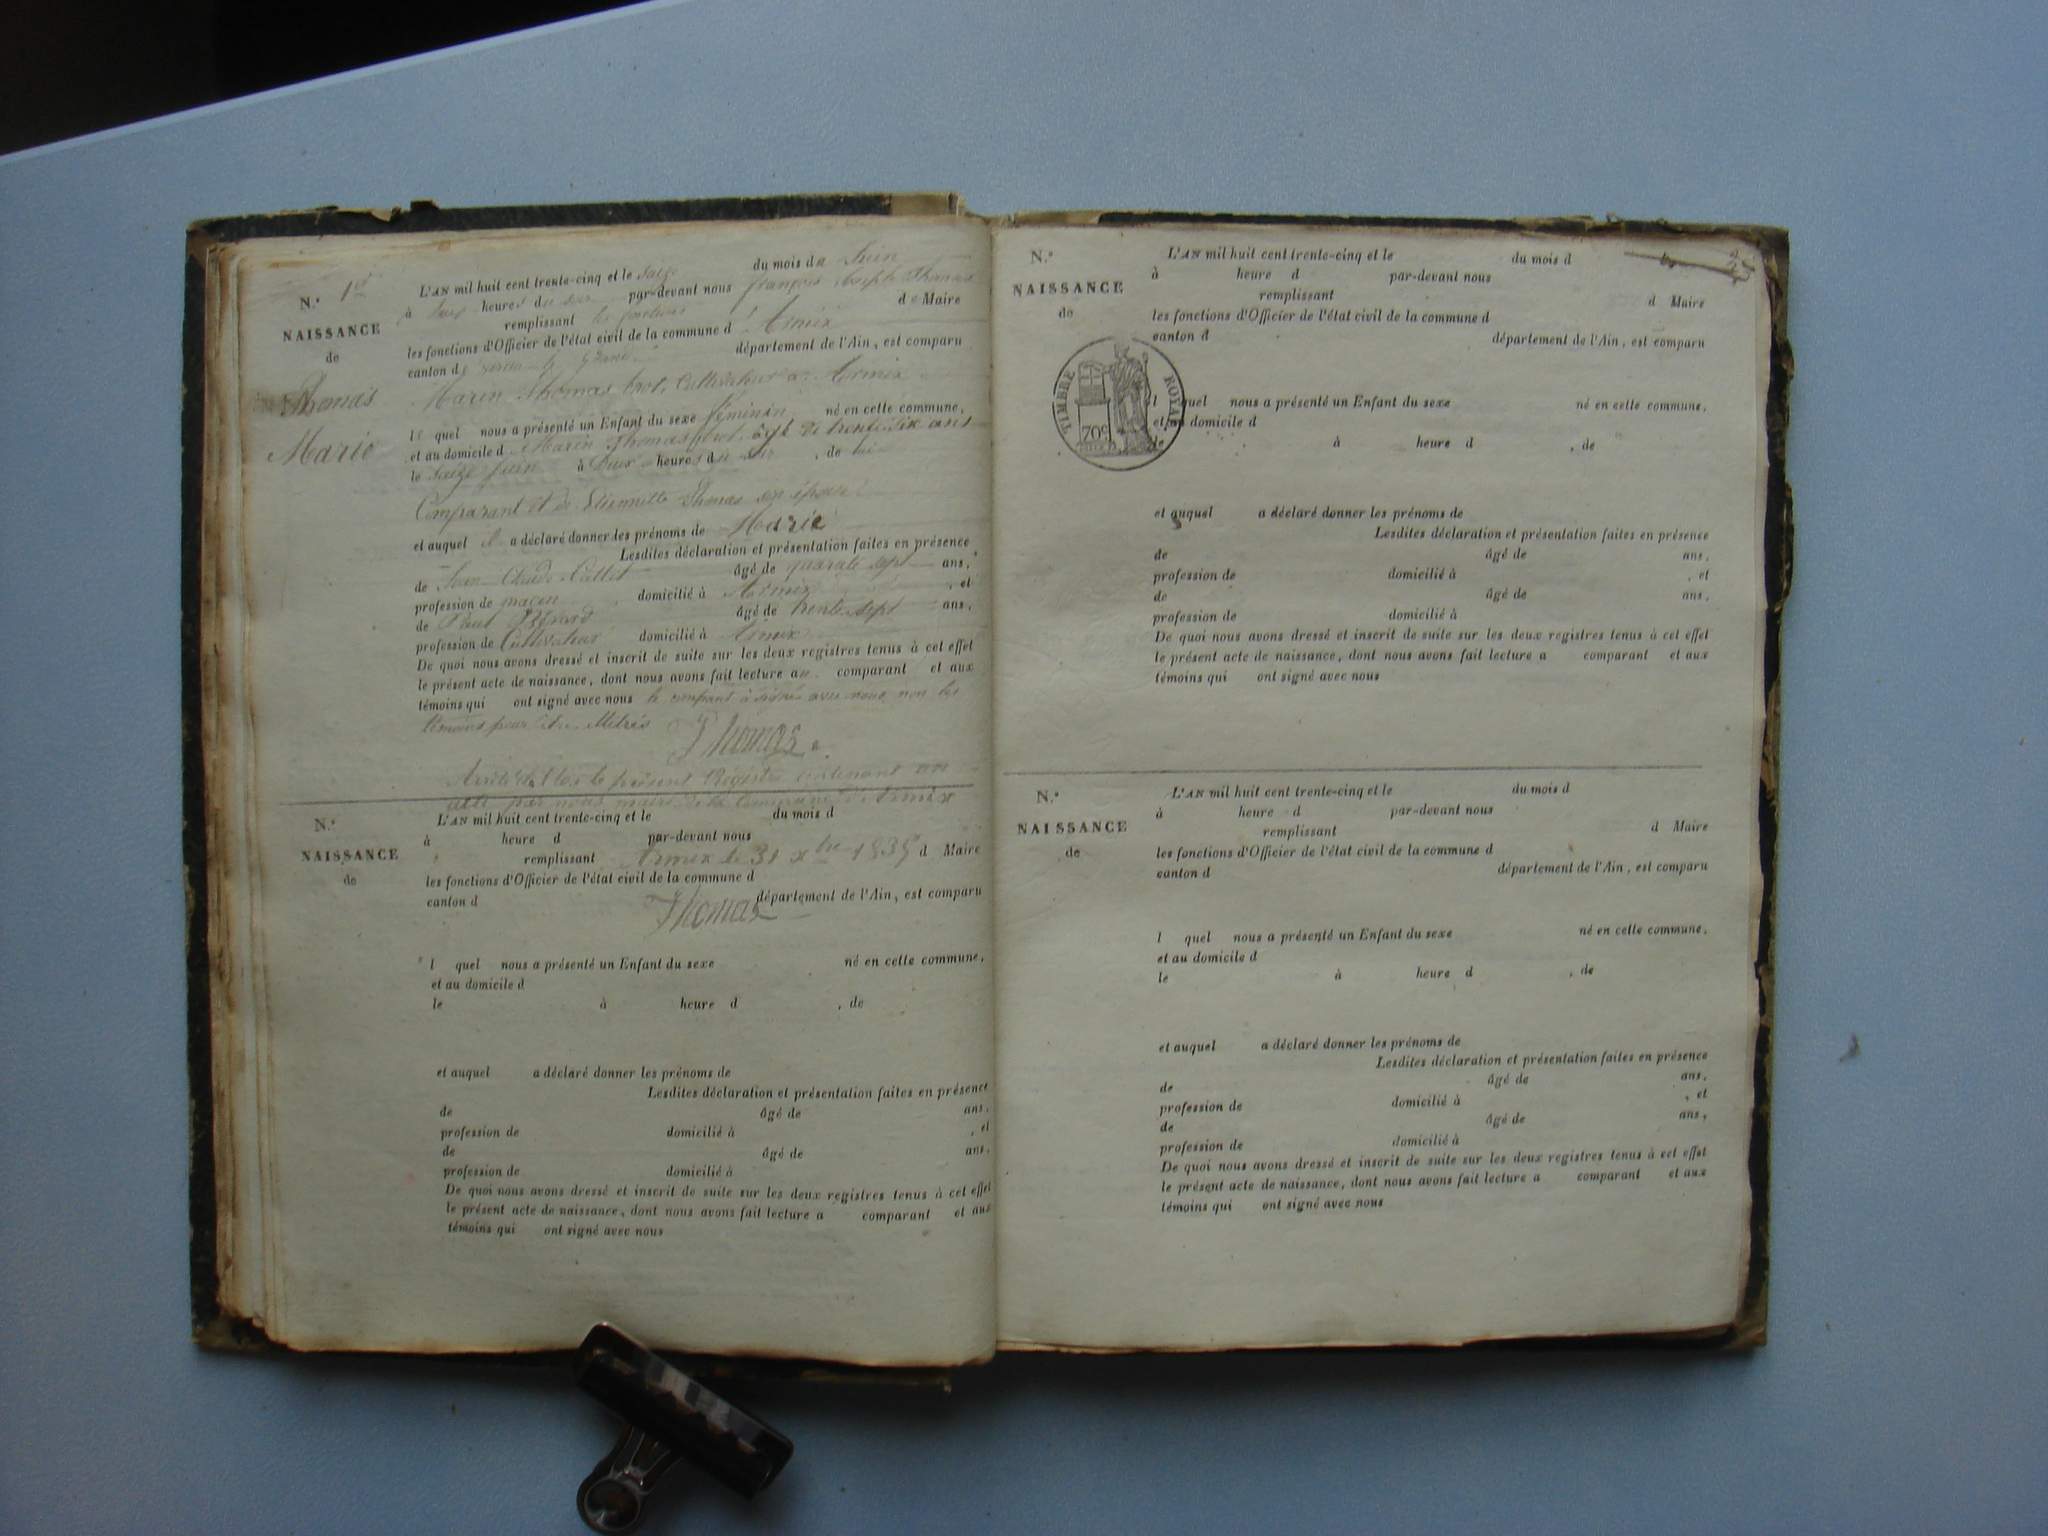 N.° 1er
NAISSANCE
de
Thomas
Marie
L'AN mil huit cent trente-cinq et le Seize du mois de Juin
à heures du soir par-devant nous françois Joseph Thomas
remplissant les fonctions de Maire
les fonctions d'Officier de l'état civil de la commune d'Armix
canton de département de l'Ain, est comparu
Marin Thomas brot, Cultivateur à Armix
le quel nous a présenté un Enfant du sexe féminin né en cette commune,
et au domicile d Marin Thomas brot, âgé de trente six ans
le Seize Juin à Deux heures du soir, de lui
Comparant et de Etiennette Thomas son épouse
et auquel il a déclaré donner les prénoms de Marie
Lesdites déclaration et présentation faites en présence
de Jean Claude Callet âgé de quarate sept ans,
profession de maçon domicilié à Armix, et
de Paul âgé de trente sept ans,
profession de Cultivateur domicilié à Armix
De quoi nous avons dressé et inscrit de suite sur les deux registres tenus à cet effet
le présent acte de naissance, dont nous avons fait lecture au comparant et aux
témoins qui ont signé avec nous le compant à signé avec nous non les
témoins pour être
Thomas
Arrêté et clos le présent Registre contenant un
acte par nous maire de la Commune d'Armix
Armix le 31 xbre 1835
Thomas
N.°
NAISSANCE
de
L'AN mil huit cent trente-cinq et le du mois d
à heure d par-devant nous
remplissant d Maire
les fonctions d'Officier de l'état civil de la commune d
canton d département de l'Ain, est comparu
l quel nous a présenté un Enfant du sexe né en cette commune,
et au domicile d
le à heure d , de
et auquel a déclaré donner les prénoms de
Lesdites déclaration et présentation faites en présence
de âgé de ans,
profession de domicilié à , et
de âgé de ans,
profession de domicilié à
De quoi nous avons dressé et inscrit de suite sur les deux registres tenus à cet effet
le présent acte de naissance, dont nous avons fait lecture a comparant et aux
témoins qui ont signé avec nous
N.°
NAISSANCE
de
TIMBRE ROYAL
70c
L'AN mil huit cent trente-cinq et le du mois d
à heure d par-devant nous
remplissant d Maire
les fonctions d'Officier de l'état civil de la commune d
canton d département de l'Ain, est comparu
l quel nous a présenté un Enfant du sexe né en cette commune,
et au domicile d
le à heure d , de
et auquel a déclaré donner les prénoms de
Lesdites déclaration et présentation faites en présence
de âgé de ans,
profession de domicilié à , et
de âgé de ans,
profession de domicilié à
De quoi nous avons dressé et inscrit de suite sur les deux registres tenus à cet effet
le présent acte de naissance, dont nous avons fait lecture a comparant et aux
témoins qui ont signé avec nous
N.°
NAISSANCE
de
L'AN mil huit cent trente-cinq et le du mois d
à heure d par-devant nous
remplissant d Maire
les fonctions d'Officier de l'état civil de la commune d
canton d département de l'Ain, est comparu
l quel nous a présenté un Enfant du sexe né en cette commune,
et au domicile d
le à heure d , de
et auquel a déclaré donner les prénoms de
Lesdites déclaration et présentation faites en présence
de âgé de ans,
profession de domicilié à , et
de âgé de ans,
profession de domicilié à
De quoi nous avons dressé et inscrit de suite sur les deux registres tenus à cet effet
le présent acte de naissance, dont nous avons fait lecture a comparant et aux
témoins qui ont signé avec nous